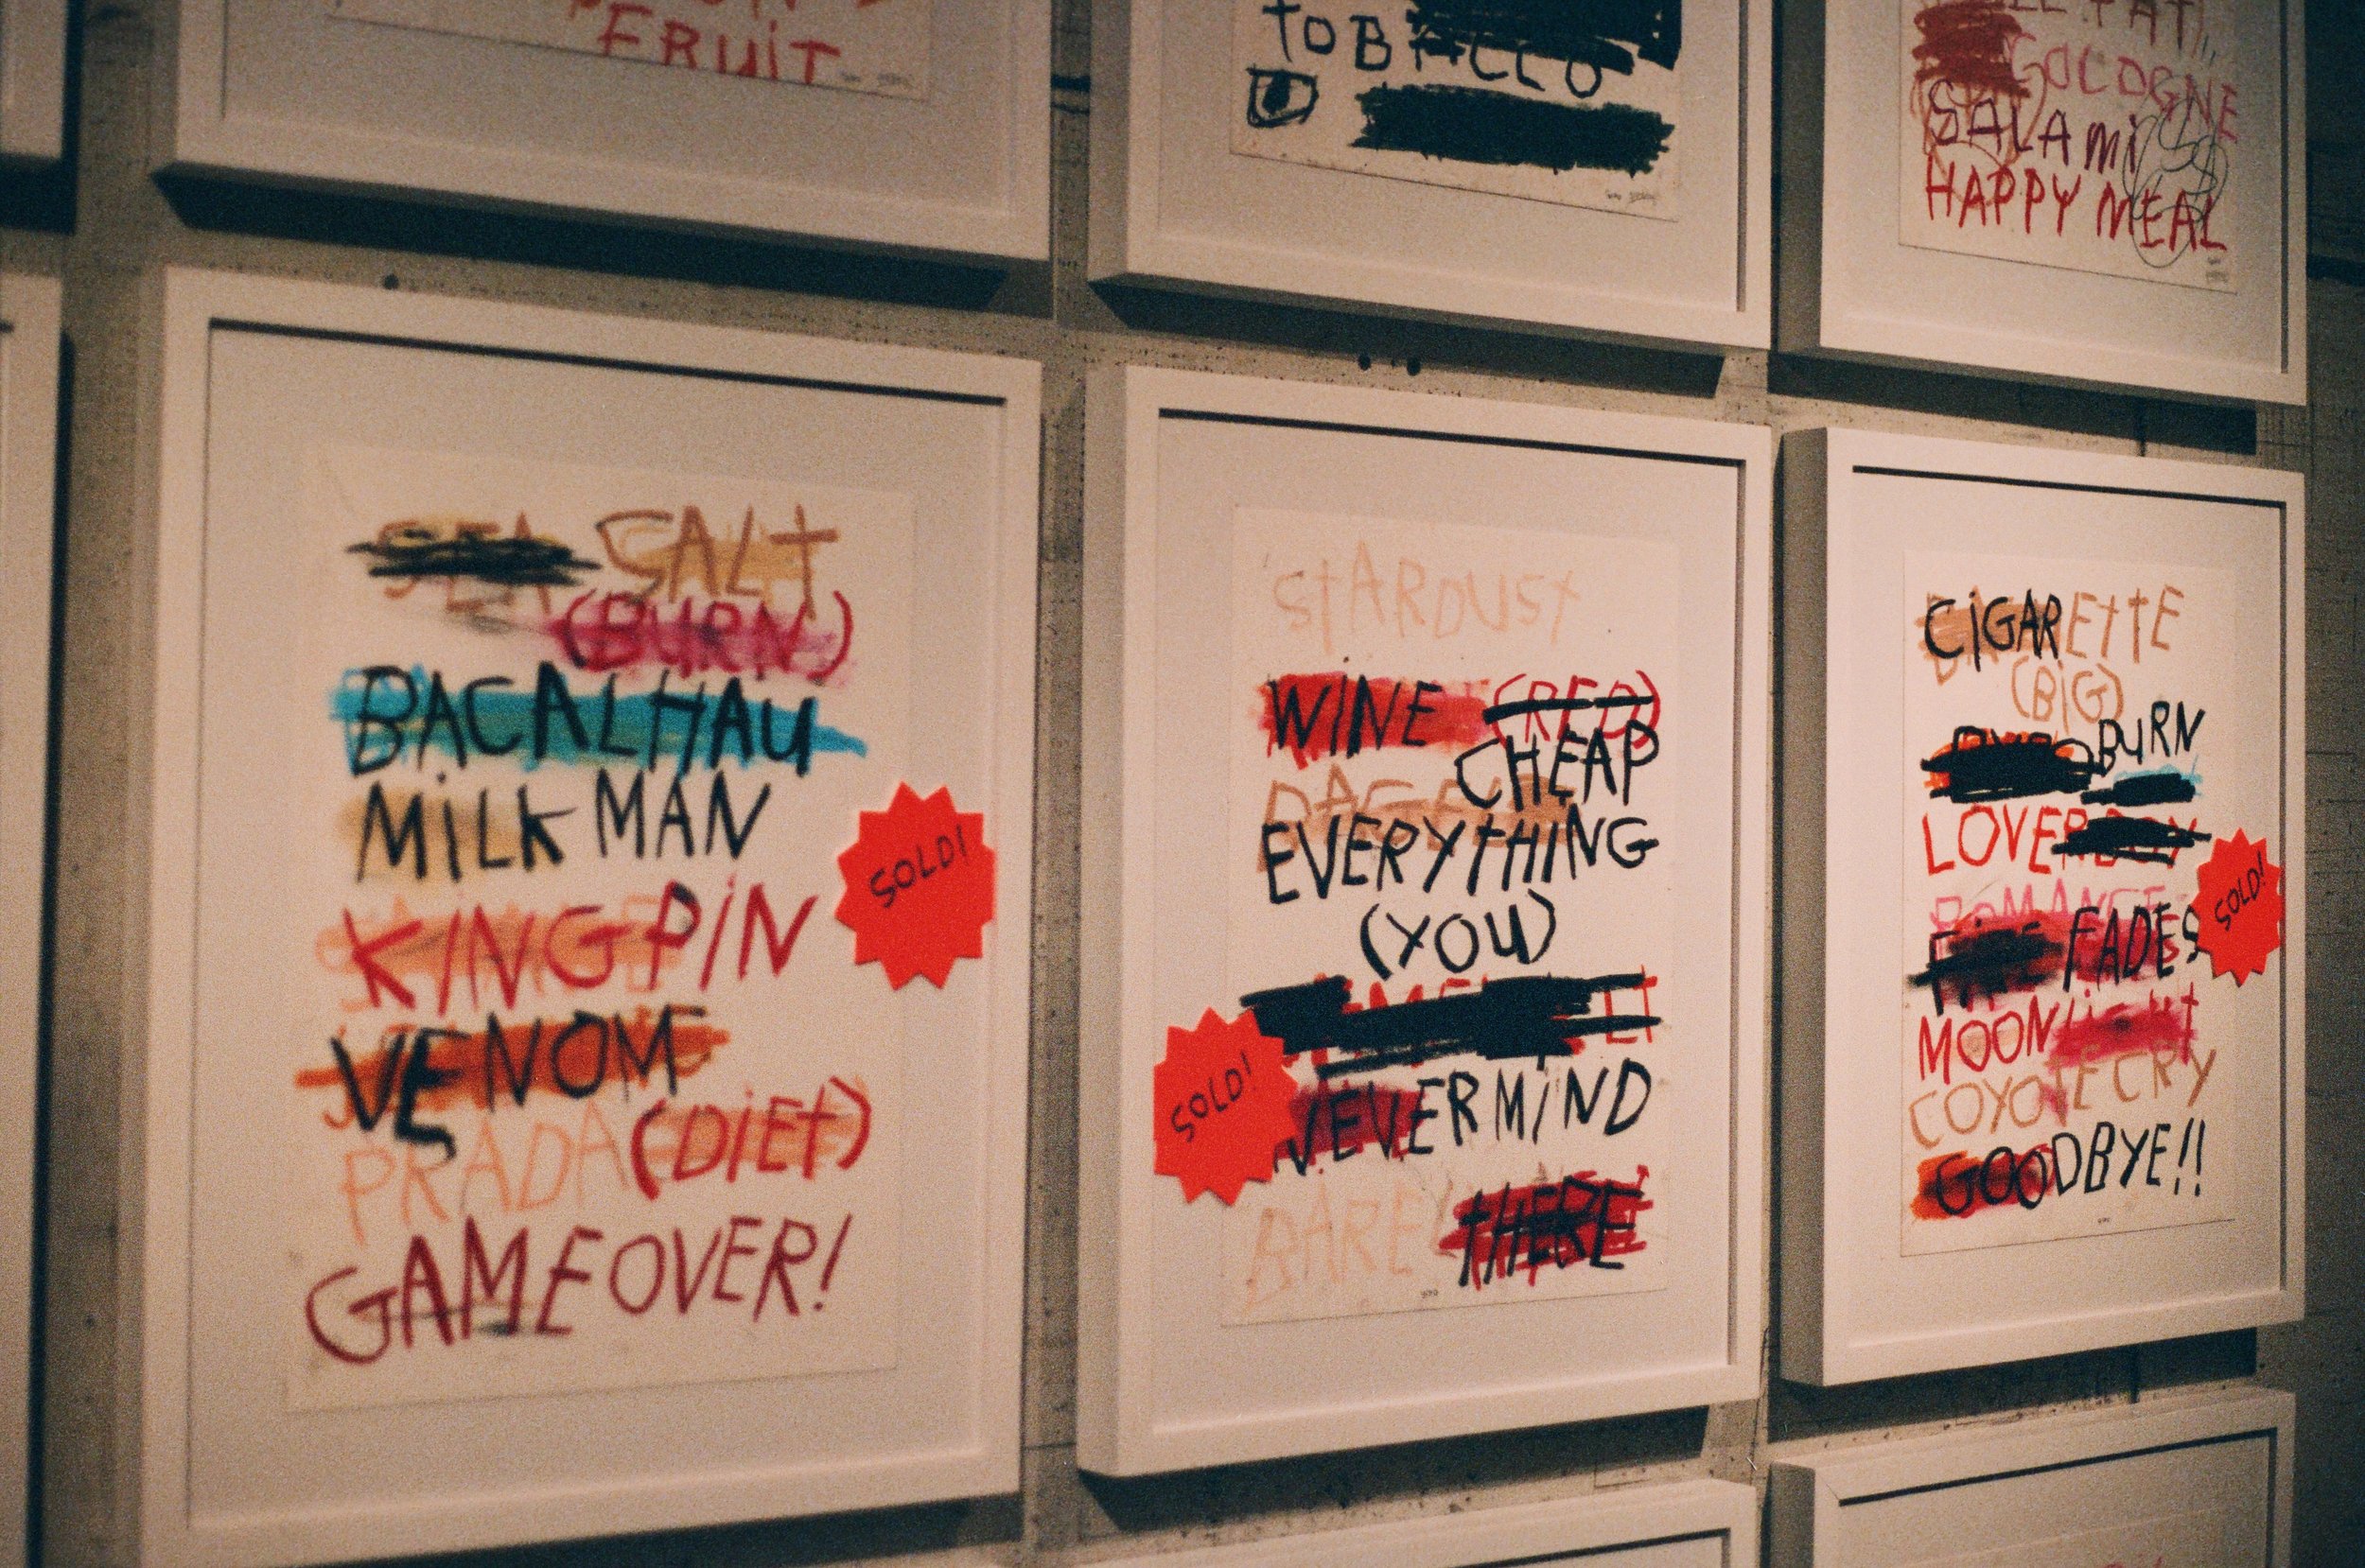 FRUIT
TOBACCO
FAT
COLOGNE
SALAMI
HAPPY MEAL
SEA SALT
(BURN)
BACALHAU
MILKMAN
KINGPIN
VENOM
PRADA (DIET)
GAMEOVER!
SOLD!
STARDUST
WINE (RED)
CHEAP
EVERYTHING
(YOU)
NEVERMIND
THERE
SOLD!
CIGARETTE
(BIG)
BURN
LOVERBOY
ROMANCE
FADES
MOONLIGHT
COYOTE CRY
GOODBYE!!
SOLD!